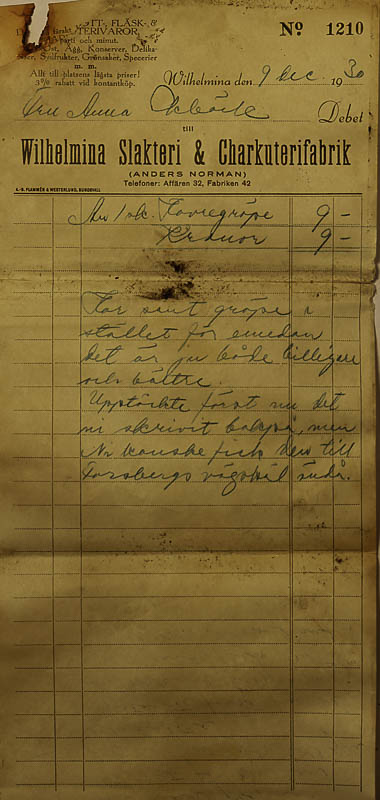 TT-, FLÄSK- &
TERIVAROR,
Parti och minut.
Ost, Ägg, Konserver, Delika-
Sydfrukter, Grönsaker, Specerier
m. m.
Allt till platsens lägsta priser!
3% rabatt vid kontantköp.
No 1210
Wilhelmina den 9 dec. 1930
Fru Anna
Debet
till
Wilhelmina Slakteri & Charkuterifabrik
(ANDERS NORMAN)
Telefoner: Affären 32, Fabriken 42
A.-B. FLAMMÉN & WESTERLUND, SUNDSVALL
Av 1 sk. Havregröpe 9 -
Kronor 9 -
Har sänt gröpe i
stället för emedan
det är ju både billigare
och bättre.
Upptäckte först nu det
ni skrivit bakpå, men
Ni kanske fick den till
Forsbergs vägskäl ändå.